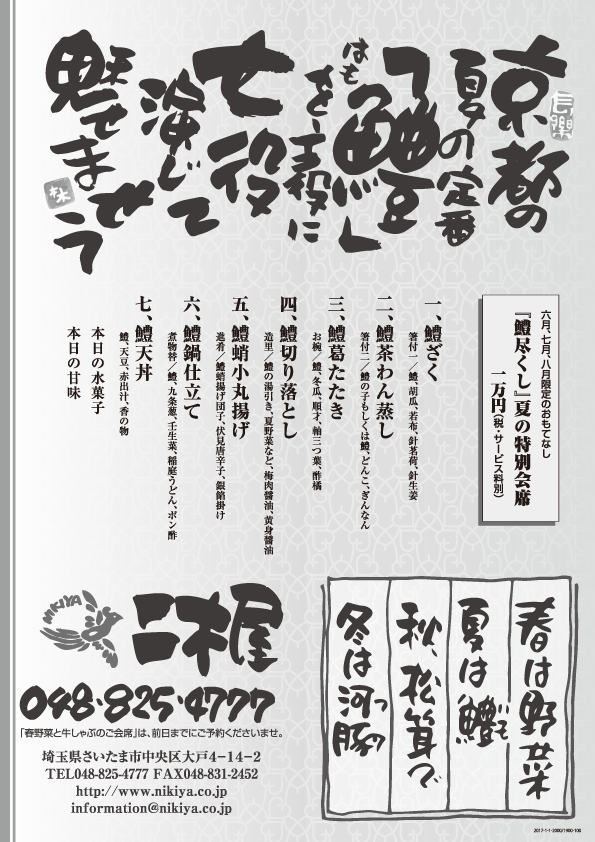 京都の
夏の定番
「鱧」
はも
を主役に
七役
演じて
魅せませう
六月、七月、八月限定のおもてなし
『鱧尽くし』夏の特別会席
一万円（税・サービス料別）
一、鱧ざく
箸付一／鱧、胡瓜、若布、針茗荷、針生姜
二、鱧茶わん蒸し
箸付二／鱧の子もしくは鱧、どんこ、ぎんなん
三、鱧葛たたき
お椀／鱧、冬瓜、順才、軸三つ葉、酢橘
四、鱧切り落とし
造里／鱧の湯引き、夏野菜など、梅肉醤油、黄身醤油
五、鱧蛸小丸揚げ
進肴／鱧蛸揚げ団子、伏見唐辛子、銀餡掛け
六、鱧鍋仕立て
煮物替／鱧、九条葱、壬生菜、稲庭うどん、ポン酢
七、鱧天丼
鱧、天豆、赤出汁、香の物
本日の水菓子
本日の甘味
春は野菜
夏は鱧
はも
秋、松茸で
冬は河豚
ふぐ
NIKIYA
二木屋
048・825・4777
「春野菜と牛しゃぶのご会席」は、前日までにご予約くださいませ。
埼玉県さいたま市中央区大戸4－14－2
TEL048-825-4777 FAX048-831-2452
http://www.nikiya.co.jp
information@nikiya.co.jp
2017-1-1-2000/1900-100